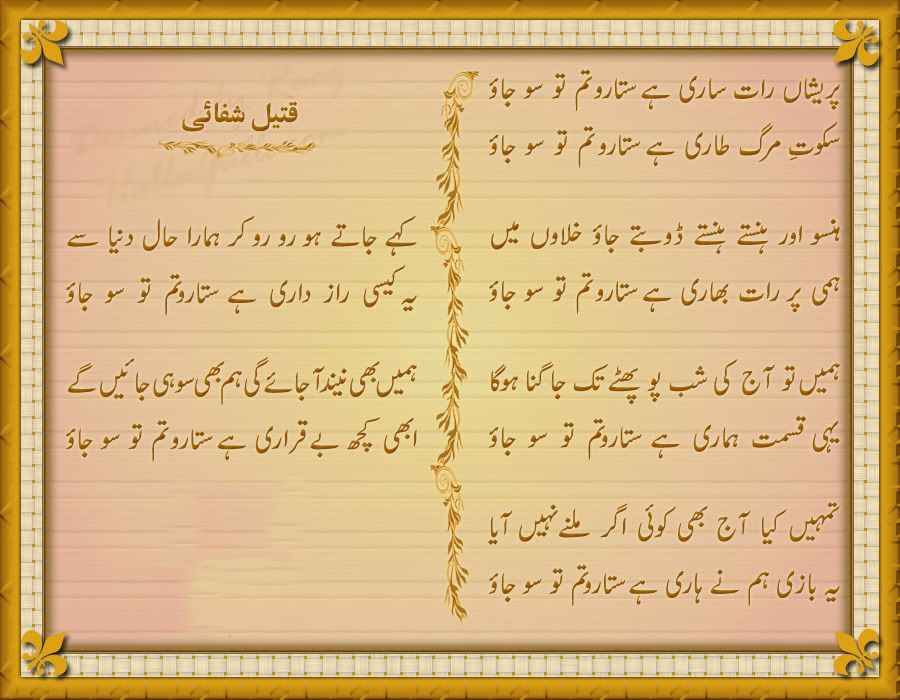 قتیل شفائی
پریشاں رات ساری ہے ستارو تم تو سو جاؤ
سکوتِ مرگ طاری ہے ستارو تم تو سو جاؤ
ہنسو اور ہنستے ہنستے ڈوبتے جاؤ خلاوں میں
ہمی پر رات بھاری ہے ستارو تم تو سو جاؤ
ہمیں تو آج کی شب پو پھٹے تک جاگنا ہوگا
یہی قسمت ہماری ہے ستارو تم تو سو جاؤ
تمہیں کیا آج بھی کوئی اگر ملنے نہیں آیا
یہ بازی ہم نے ہاری ہے ستارو تم تو سو جاؤ
کہے جاتے ہو رو رو کر ہمارا حال دنیا سے
یہ کیسی راز داری ہے ستارو تم تو سو جاؤ
ہمیں بھی نیند آ جائے گی ہم بھی سو ہی جائیں گے
ابھی کچھ بے قراری ہے ستارو تم تو سو جاؤ